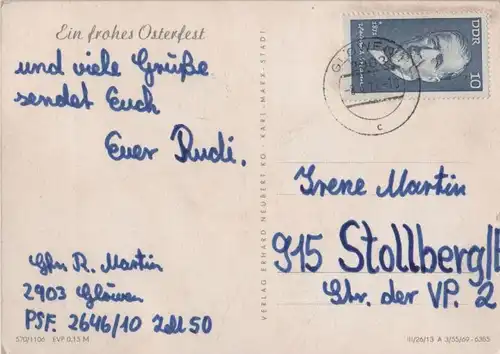 Ein frohes Osterfest
und viele Grüße
sendet Euch
Euer Rudi.
Gfr. R. Martin
2903 Glöwen
PSF. 2646/10
570/1106 EVP 0,15 M
VERLAG ERHARD NEUBERT KG · KARL-MARX-STADT
DDR
10
c
Irene Martin
915 Stollberg/E
Str. der VP. 2
III/26/13 A 3/55/69 6385